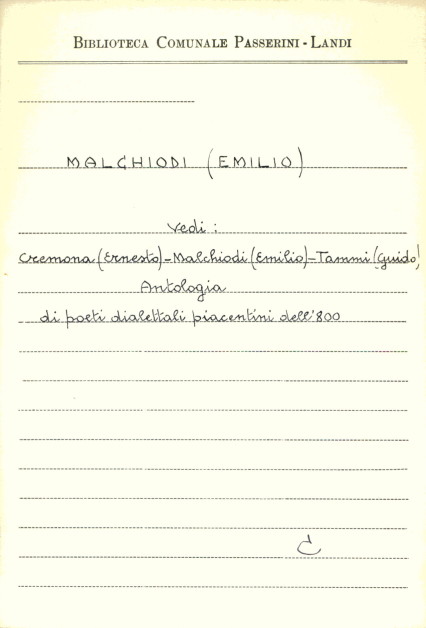 BIBLIOTECA COMUNALE PASSERINI - LANDI
MALCHIODI (EMILIO)
Vedi :
Cremona (Ernesto) - Malchiodi (Emilio) - Tammi (Guido)
Antologia
di poeti dialettali piacentini dell'800
C